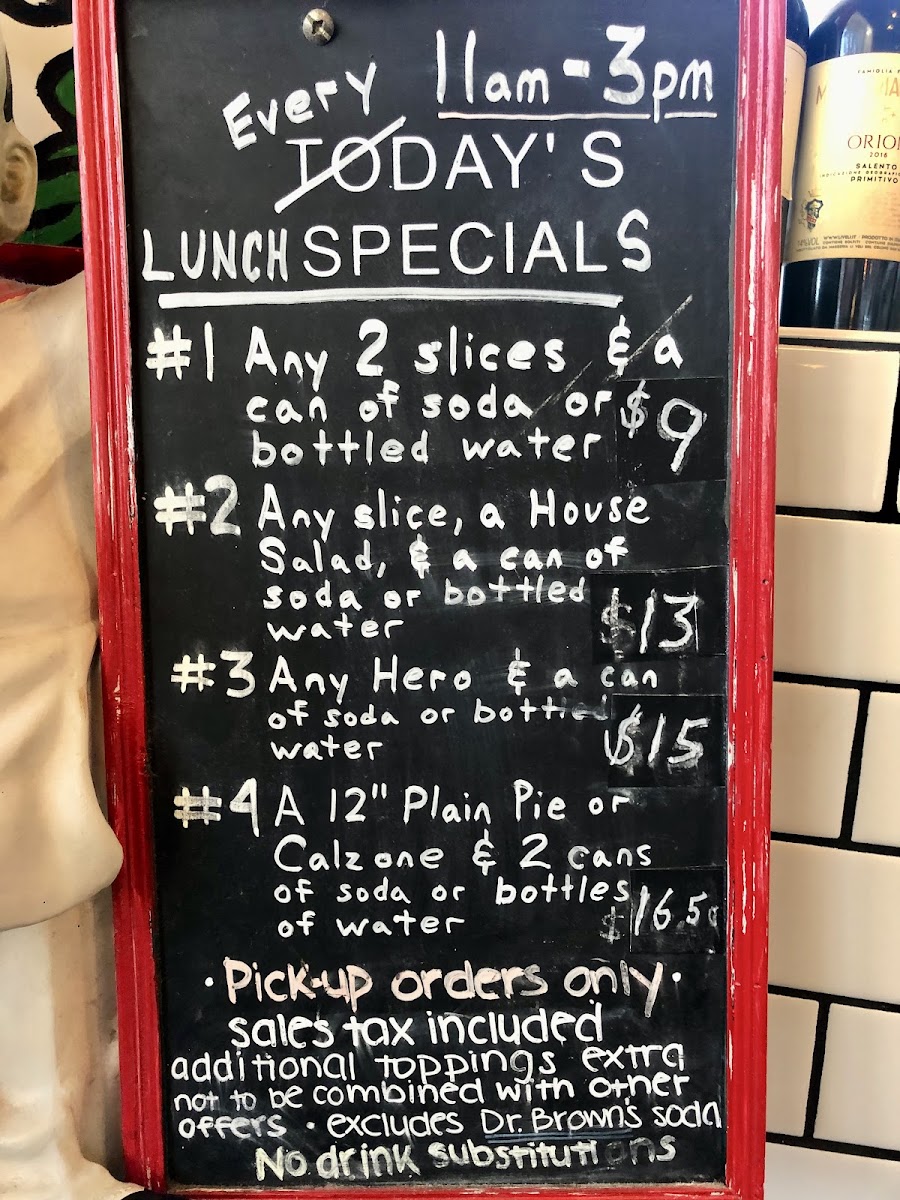 Every 11am - 3pm
TODAY'S
LUNCH SPECIALS
#1 Any 2 slices & a
can of soda or
bottled water $9
#2 Any slice, a House
Salad, & a can of
soda or bottled
water $13
#3 Any Hero & a can
of soda or bottled
water $15
#4 A 12" Plain Pie or
Calzone & 2 cans
of soda or bottles
of water $16.50
· Pick-up orders only ·
sales tax included
additional toppings extra
not to be combined with other
offers · excludes Dr. Brown's soda
No drink substitutions
FAMIGLIA
ORION
2016
SALENTO
PRIMITIVO